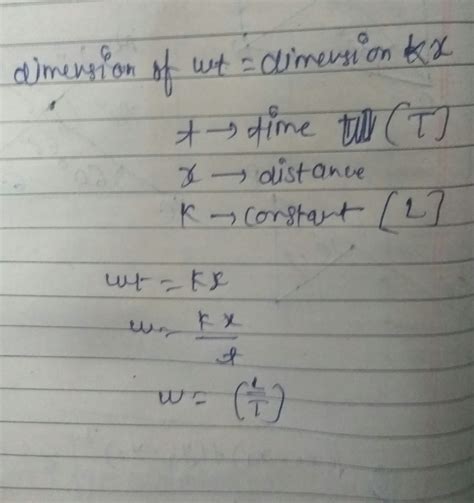 dimension of wt = dimension kx
t → time (T]
x → distance
K → constant [L]
wt = kx
w = kx/t
w = (L/T)